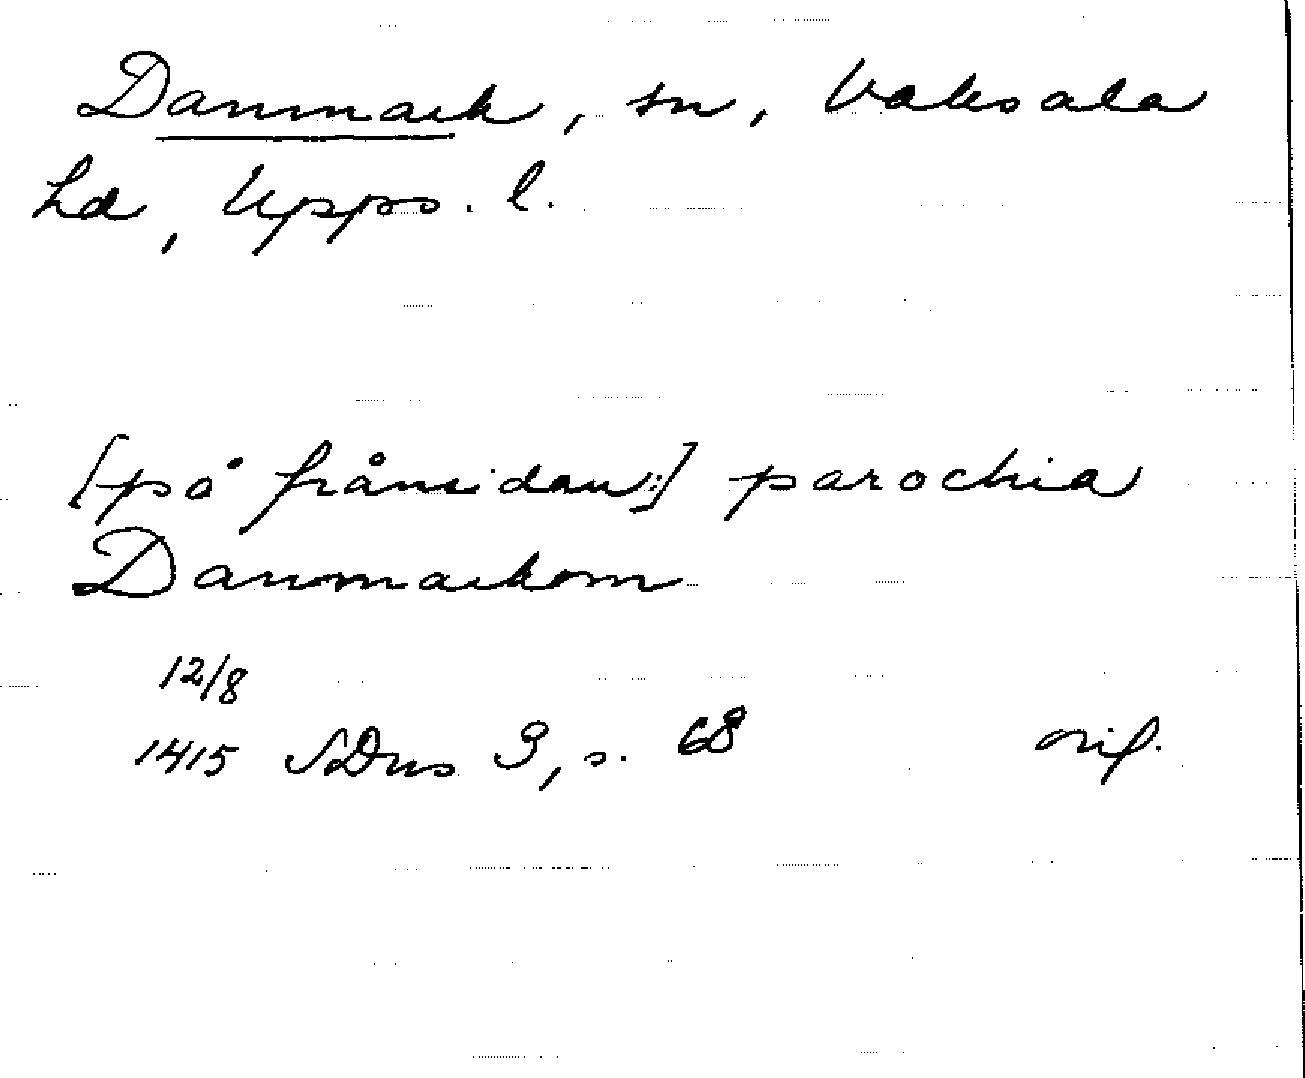 Danmark, sn, Vaksala
hd, Upps. l.
[på frånsidan:] parochia
Danmarkom
12/8
1415 SDns 3, s. 68 orig.